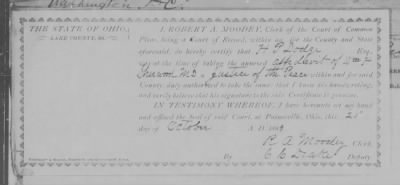 Washington, D.C.
THE STATE OF OHIO,
LAKE COUNTY, SS.
I, ROBERT A. MOODEY, Clerk of the Court of Common
Pleas, being a Court of Record, within and for the County and State
aforesaid, do hereby certify that H P Dodge Esq.
was at the time of taking the annexed affidavit of Wm J
Sherwood M.D. a Justice of the Peace within and for said
County, duly authorized to take the same; that I know his handwriting,
and verily believe that his signature to the said Certificate is genuine.
IN TESTIMONY WHEREOF, I have hereunto set my hand
and affixed the Seal of said Court, at Painesville, Ohio, this 21
day of October A. D. 188
R A Moodey Clerk,
By Deputy